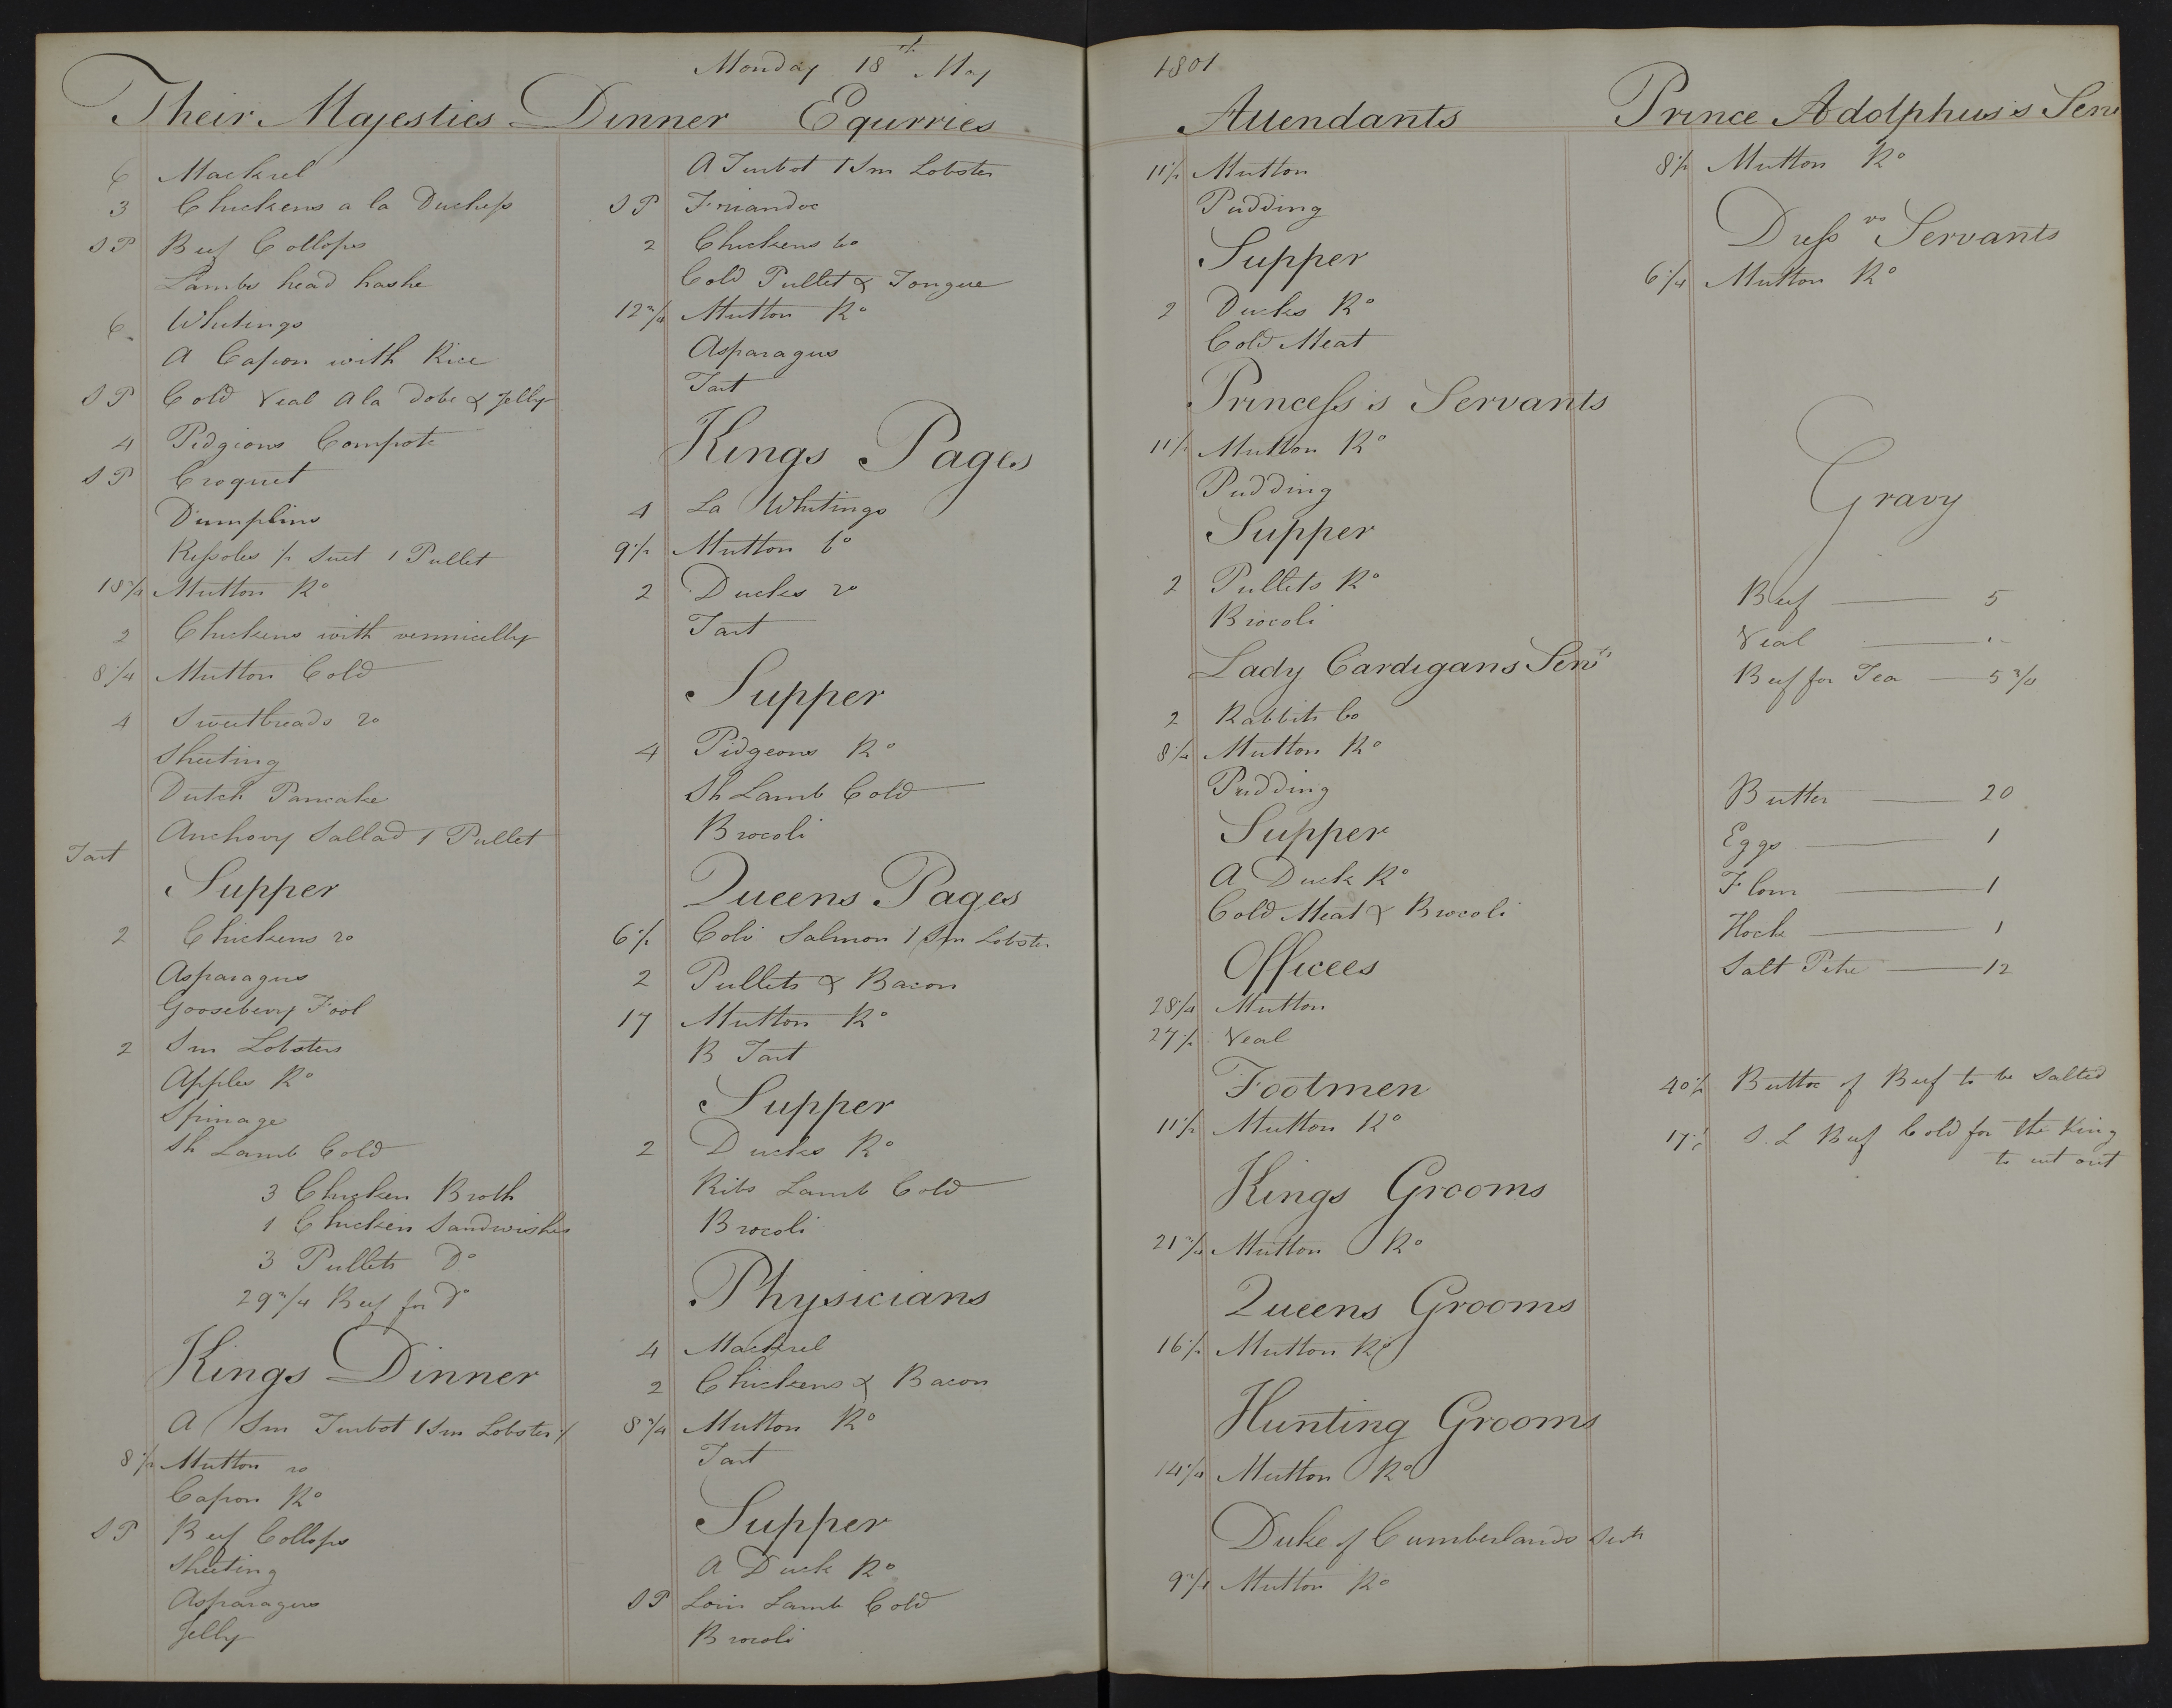 Monday 18th May
Their Majesties Dinner
6 Mackrel
3 Chickens a la Duchess
S P Beef Collops
Lambs head hashe
6 Whitings
A Capon with Rice
S P Cold Veal A la Dobe & Jelly
4 Pidgions Compote
S P Croquet
Dumplins
Rissoles 1/2 Suet 1 Pullet
18 3/4 Mutton Ro
2 Chickens with vermicelly
8 1/4 Mutton Cold
4 Sweetbreads ro
Sheeting
Dutch Pancake
Anchovy Sallad 1 Pullet
Tart
Supper
2 Chickens ro
Asparagus
Gooseberry Fool
2 Sm Lobsters
Apples Ro
Spinage
Sh Lamb Cold
3 Chicken Broth
1 Chicken Sandwishes
3 Pullets Do
29 3/4 Beef for Do
Kings Dinner
A Sm Turbot 1 Sm Lobster
8 1/2 Mutton ro
Capon Ro
S P Beef Collops
Sheeting
Asparagus
Jelly
Equrries
A Turbot 1 Sm Lobster
S P Friandoe
2 Chickens bo
Cold Pullet & Tongue
12 3/4 Mutton Ro
Asparagus
Tart
Kings Pages
4 La Whitings
9 1/2 Mutton bo
2 Ducks ro
Tart
Supper
4 Pidgeons Ro
Sh Lamb Cold
Brocoli
Queens Pages
6 1/2 Salmon 1 Sm Lobster
2 Pullets & Bacon
17 Mutton Ro
B Tart
Supper
2 Ducks Ro
Ribs Lamb Cold
Brocoli
Physicians
4 Mackrel
2 Chickens & Bacon
8 3/4 Mutton Ro
Tart
Supper
A Duck Ro
S P Loin Lamb Cold
Brocoli
1801
Attendants
11 1/2 Mutton
Pudding
Supper
2 Ducks Ro
Cold Meat
Princess's Servants
11 1/2 Mutton Ro
Pudding
Supper
2 Pullets Ro
Brocoli
Lady Cardigans Servts
2 Rabbits bo
8 1/4 Mutton Ro
Pudding
Supper
A Duck Ro
Cold Meat & Brocoli
Officees
28 1/4 Mutton
27 1/2 Veal
Footmen
11 1/2 Mutton Ro
Kings Grooms
21 3/4 Mutton Ro
Queens Grooms
16 1/2 Mutton Ro
Hunting Grooms
14 1/4 Mutton Ro
Duke of Cumberlands Servts
9 3/4 Mutton Ro
Prince Adolphus's Serv
8 1/2 Mutton Ro
Dress rs Servants
6 1/4 Mutton Ro
Gravy
Beef 5
Veal
Beef for Tea 5 3/4
Butter 20
Eggs 1
Flour 1
Hock 1
Salt Petre 12
40 1/2 Buttoc of Beef to be Salted
17 1/2 S. L Beef Cold for the King
to cut out